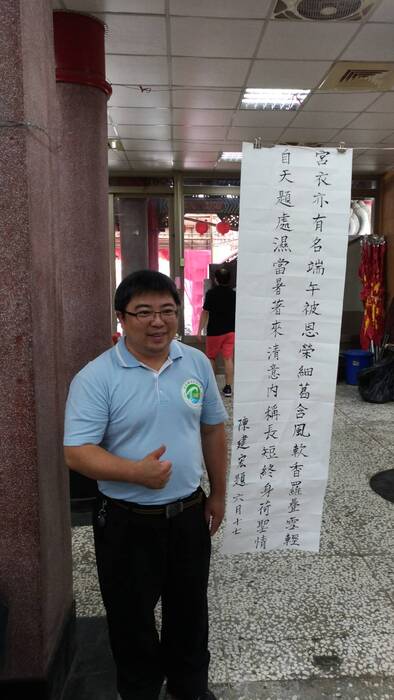 宮衣亦有名端午被恩榮細葛含風軟香羅疊雪輕
自天題處濕當暑著來清意內稱長短終身荷聖情
陳建宏題六月十七